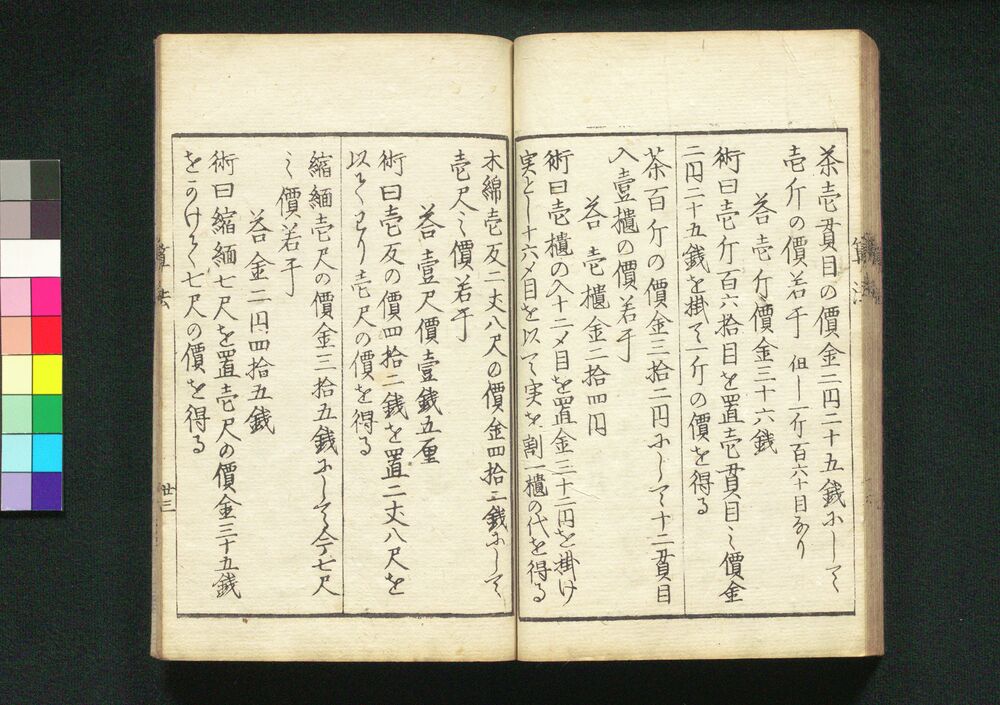 茶壱貫目の價金二円二十五銭にして
壱斤の價若干 但し一斤百六十目なり
答壱斤價金三十六銭
術曰壱斤百六拾目を置壱貫目之價金
二円二十五銭を掛て一斤の價を得る
茶百斤の價金三拾二円にして十二貫目
入壹櫃の價若干
答壱櫃金二拾四円
術曰壱櫃の入十二〆目を置金三十二円を掛け
実とし十六〆目を以て実を割一櫃の代を得る
木綿壱反二丈八尺の價金四拾二銭にして
壱尺之價若干
答壹尺價壹銭五厘
術曰壱反の價四拾二銭を置二丈八尺を
以てわり壱尺の價を得る
縮緬壱尺の價金三拾五銭にして今七尺
之價若干
答金二円四拾五銭
術曰縮緬七尺を置壱尺の價金三十五銭
をかけて七尺の價を得る
廿三